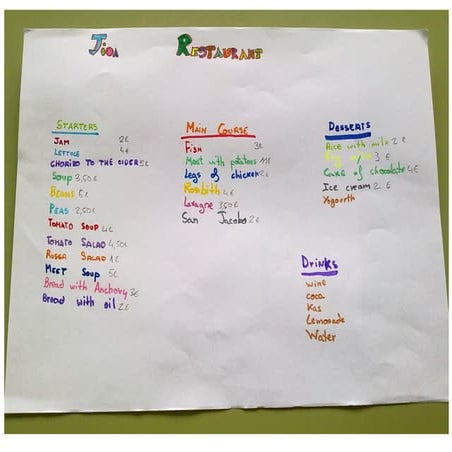 Restaurant
Starters
Jam 2€
Lettuce 4€
Chorizo to the cider 5€
Soup 3,50€
Beans 5€
Peas 2,50€
Tomato soup 4€
Tomato Salad 4,50€
Russa Salad
Meet Soup 5€
Bread with Anchovy 3€
Bread with oil 2€
Main Course
Fish 3€
Meet with potatoes
Legs of chicken 2€
Rosbith 4€
Lasagne 3,50€
San Jacobo 2€
Desserts
Rice with milk 2€
3€
Cake of chocolate 4€
Ice cream 2€
Yogourth
Drinks
wine
coca
Kas
Lemonade
Water